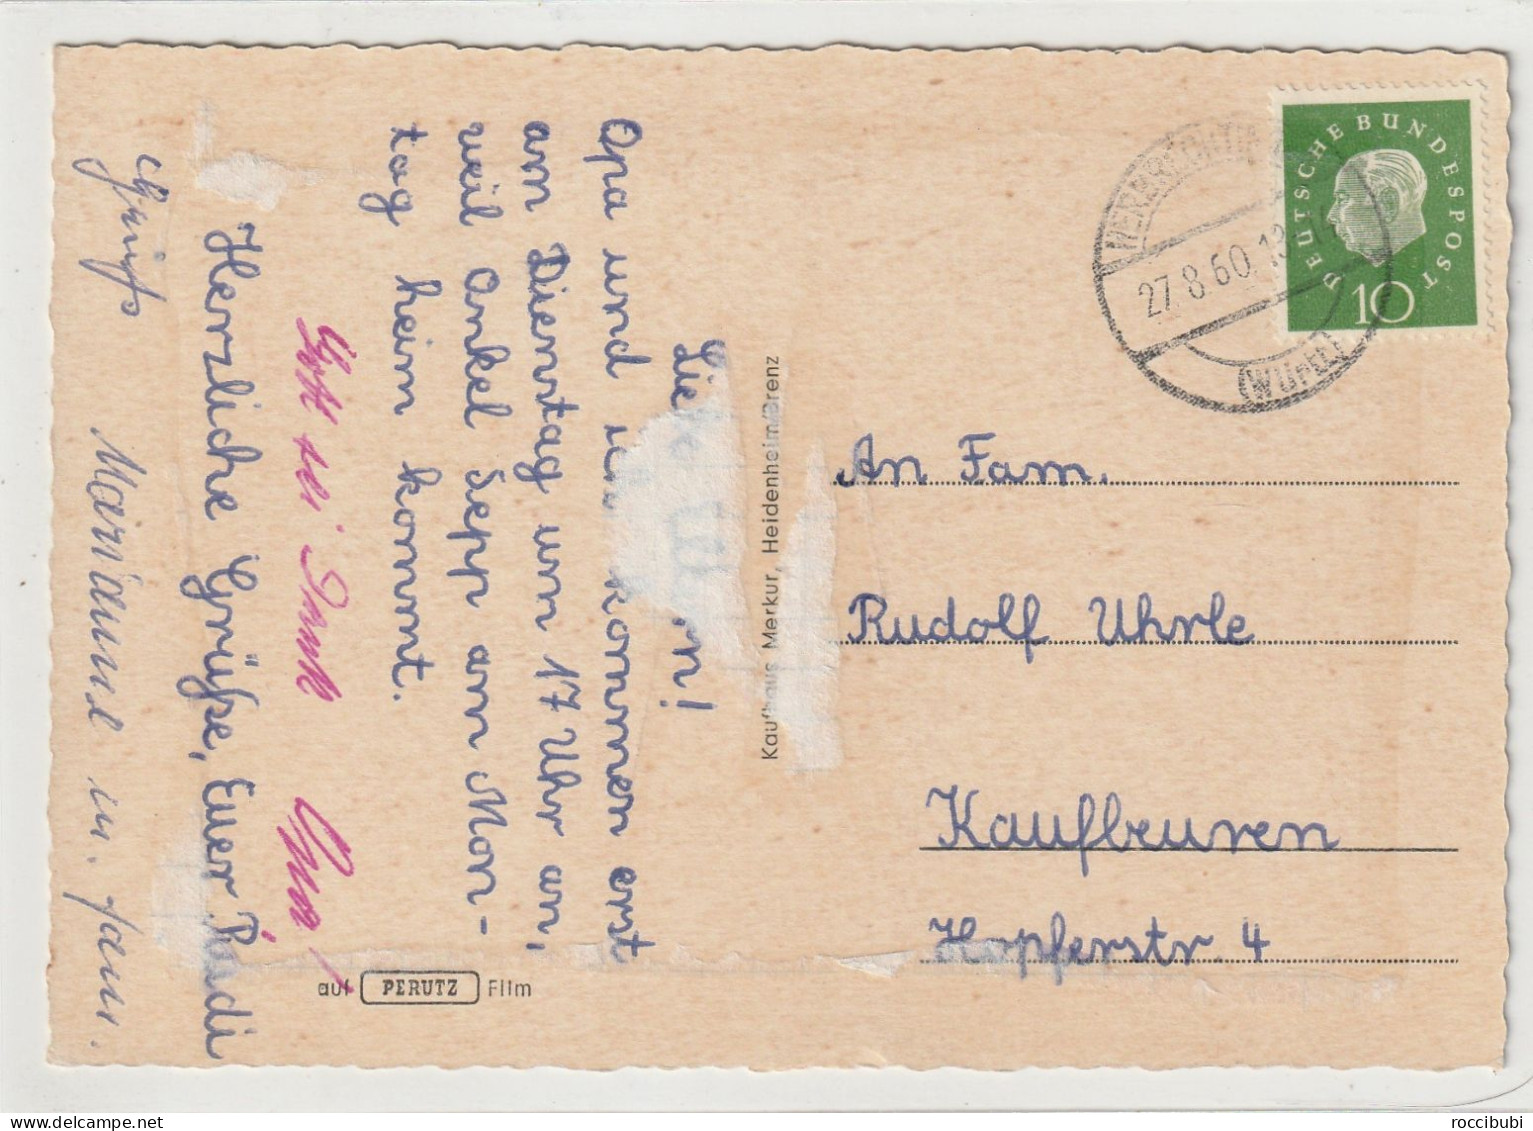 Opa und kommen erst
am Dienstag um 17 Uhr an,
weil Onkel Sepp am Mon-
tag heim kommt.
Herzliche Grüße, Euer Rudi
Gott sei Dank
Grüße Marianne u. Fam.
An Fam.
Rudolf Uhrle
Kaufbeuren
Hopferstr. 4
Kaufhaus Merkur, Heidenheim/Brenz
auf PERUTZ Film
DEUTSCHE BUNDESPOST
10
27.8.60.13
(WÜRTT)
roccibubi